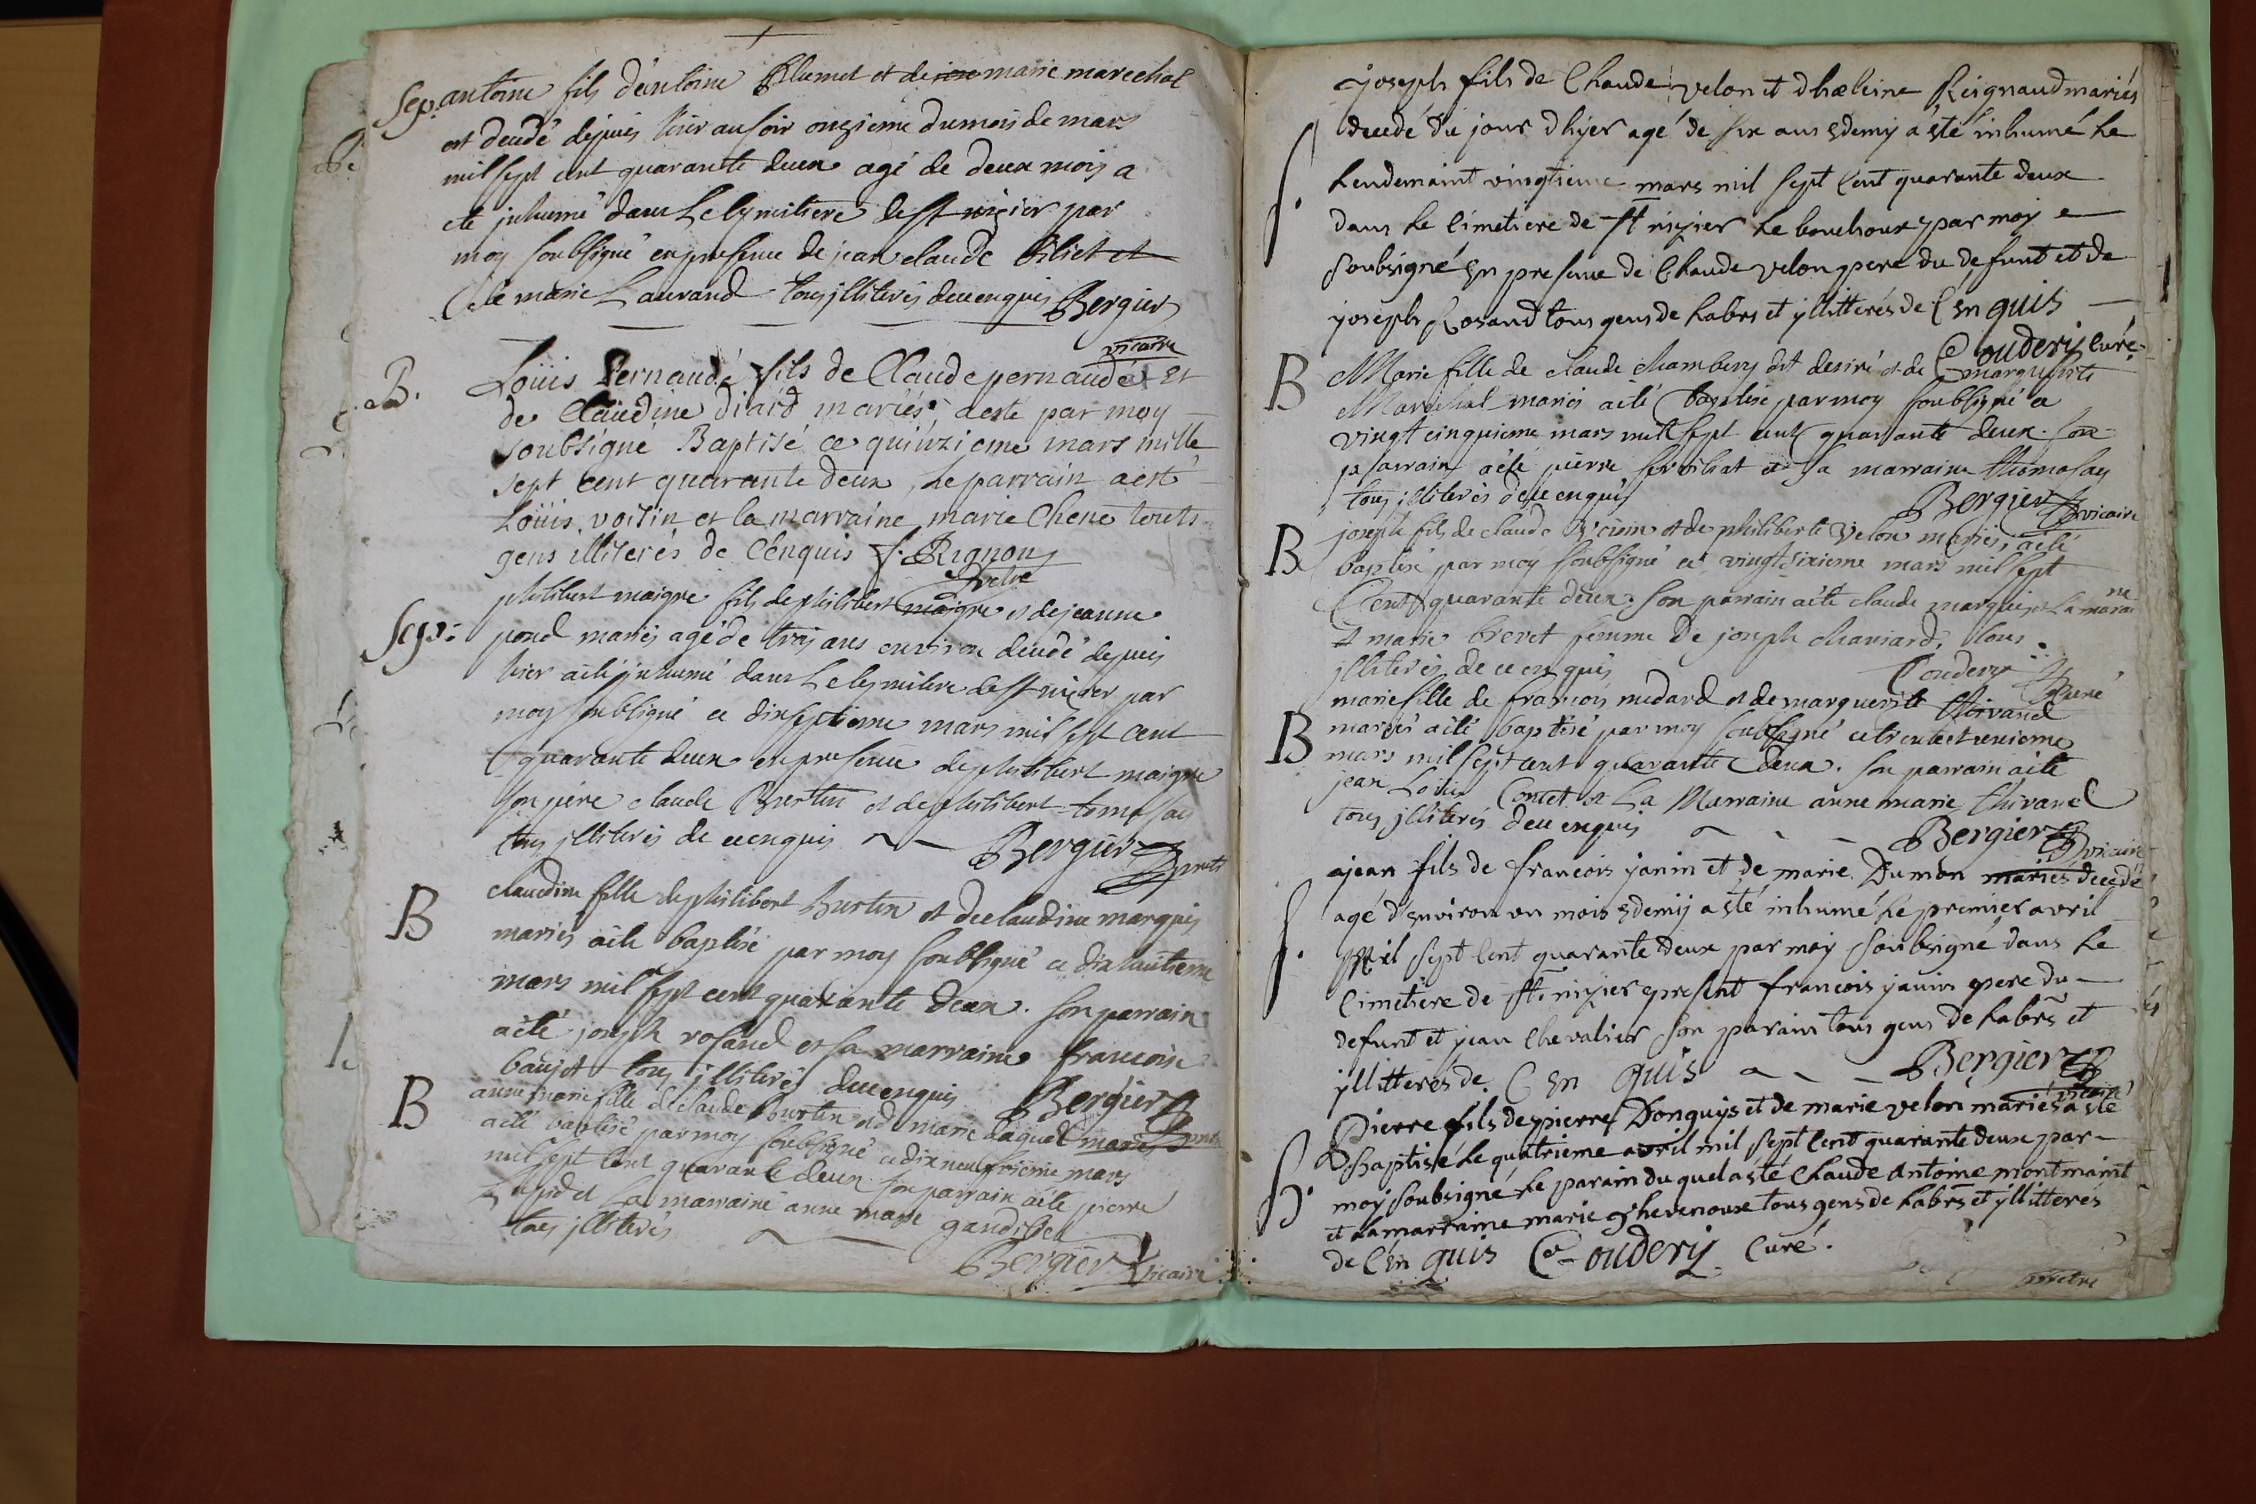 Sep. antoine fils d'antoine Plumet et de marie marechal
est decedé depuis hier au soir onzieme du mois de mars
mil sept cent quarante deux agé de deux mois a
eté inhumé dans le cymitiere de st nizier par
moy soubsigné en presence de jean claude
marie Laurand tous illiterés de ce enquis Bergier
vicaire
B. Loüis Pernaudé fils de Claude pernaudé et
de Claudine Diard mariés a esté par moy
soubsigné Baptisé ce quiinzieme mars mille
sept cent quarante deux, le parrain a esté
Loüis voisin et la marraine marie Chene touts
gens illiterés de C'enquis f. Rignon
Prêtre
philibert maigre fils de philibert maigre et de jeanne
Sep: pond mariés agé de trois ans environ decedé depuis
hier a eté inhumé dans le cymitiere de st nizier par
moy soubsigné ce dixseptieme mars mil sept cent
quarante deux en presence de philibert maigre
son pere claude Burtin et de philibert
tous illiterés de ce enquis Bergier
B claudine fille de philibert Burtin et de claudine marquis
mariés a eté baptisé par moy soubsigné ce dix huitieme
mars mil sept cent quarante deux. son parrain
a eté joseph rosand et sa marraine francoise
baujot tous illiterés de ce enquis Bergier
B anne marie fille de claude burtin et de marie mariés
a eté baptisé par moy soubsigné ce dix neufvieme mars
mil sept cent quarante deux son parrain a eté pierre
et La marraine anne marie
tous illiterés
Bergier vicaire
joseph fils de Claude velon et dhæleine Reignaud mariés
decedé du jour dhyer agé de six ans & demy a esté inhumé le
lendemaint vingtieme mars mil sept cent quarante deux
S. dans le cimetiere de st nizier le bouchoux par moy
soubsigné en presence de Claude velon pere du defunt et de
yoseph Rosand tous gens de labrs et yllitterés de C en quis
Couderij curé
B Marie fille de claude chambery dit desiré et de marguerite
Marechal mariés a eté baptisé par moy soubsigné ce
vingt cinquieme mars mil sept cent quarante deux. son
parrain a eté pierre et sa marraine
tous illiterés de ce enquis Bergier vicaire
B joseph fils de claude et de philiberte Velon mariés, a eté
baptisé par moy soubsigné ce vingt sixieme mars mil sept
Cent quarante deux. son parrain a eté claude marquis et La marai
ne
marie brevet femme de joseph chaniard, tous
illiterés de ce enquis Couderij
Curé
marie fille de francois medard et de marguerite thivand
B mariés a eté baptisé par moy soubsigné ce trente et unieme
mars mil sept cent quarante deux. son parrain a eté
jean Loüis Contet et La Marraine anne marie thivand
tous illiterés de ce enquis Bergier vicaire
ajean fils de francois janin et de marie Dumon mariés decedé
agé d'environ un mois & demij a esté inhumé le premier avril
S. mil sept cent quarante deux par moy soubsigné dans le
cimetiere de st. nizier present francois janin pere du
defunt et jean chevalier son parain tous gens de labrs et
yllitteres de C en quis Bergier
vicaire
Pierre fils de pierre Donguys et de marie velon mariés a esté
Baptisé le quatrieme avril mil sept cent quarante deux par
B. moy soubsigné le parain du quel a esté Claude Antoine montmaint
et la marraine marie tous gens de labrs et yllitteres
de C en quis Couderij Curé.